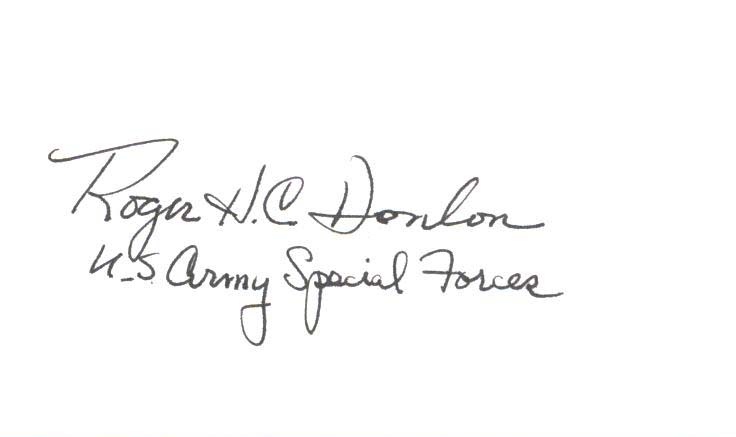 Roger H.C. Donlon
U.S. Army Special Forces